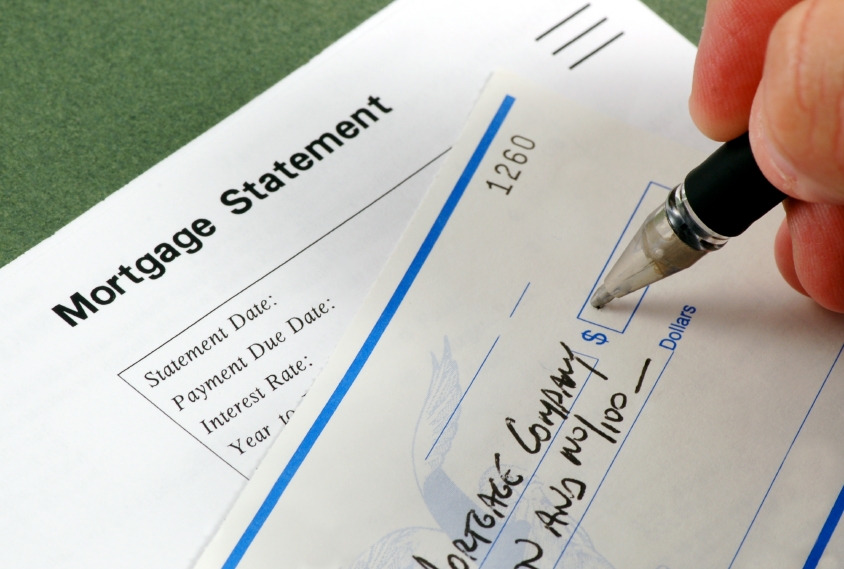 Mortgage Statement
Statement Date:
Payment Due Date:
Interest Rate:
Year to
1260
$
MORTGAGE COMPANY
AND NO/100
Dollars